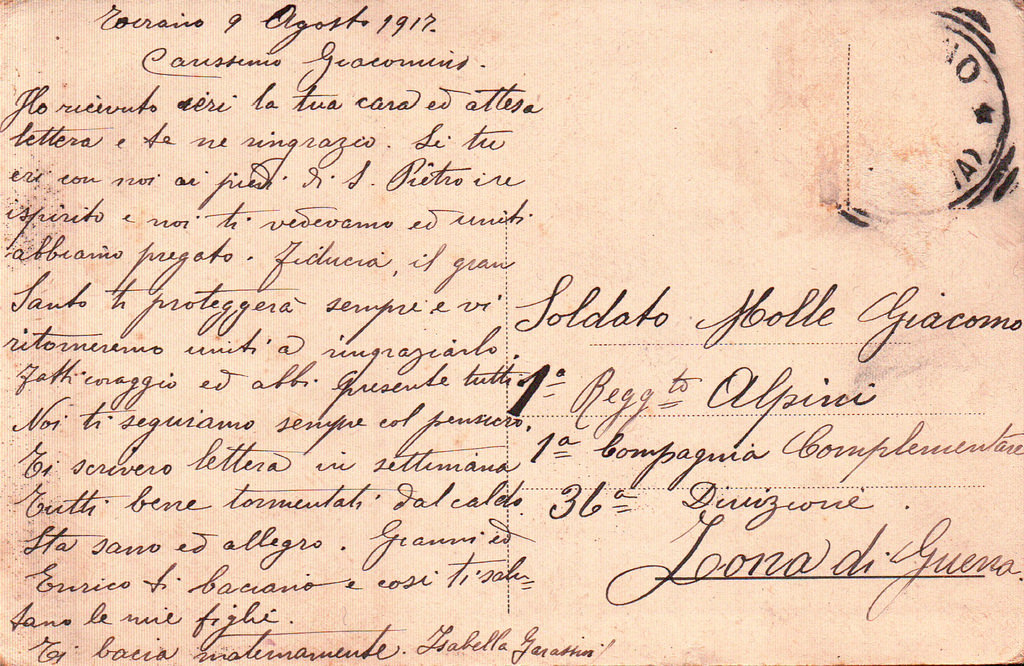 Toirano 9 Agosto 1917.
Carissimo Giacomino.
Ho ricevuto ieri la tua cara ed attesa
lettera e te ne ringrazio. Si tu
eri con noi ai piedi di S. Pietro in
ispirito e noi ti vedevamo ed uniti
abbiamo pregato. Fiducia, il gran
Santo ti proteggerà sempre e vi
ritorneremo uniti a ringraziarlo.
Fatti coraggio ed abbi presente tutti.
Noi ti seguiamo sempre col pensiero.
Ti scriverò lettera in settimana
Tutti bene tormentati dal caldo.
Sta sano ed allegro. Gianni ed
Enrico ti baciano e così ti salu=
tano le mie figlie.
Ti bacia maternamente. Isabella Garassini
NO
★
VA)
Soldato Molle Giacomo
1ª Regg.to Alpini
1ª Compagnia Complementare
36ª Divizione.
Zona di Guerra.